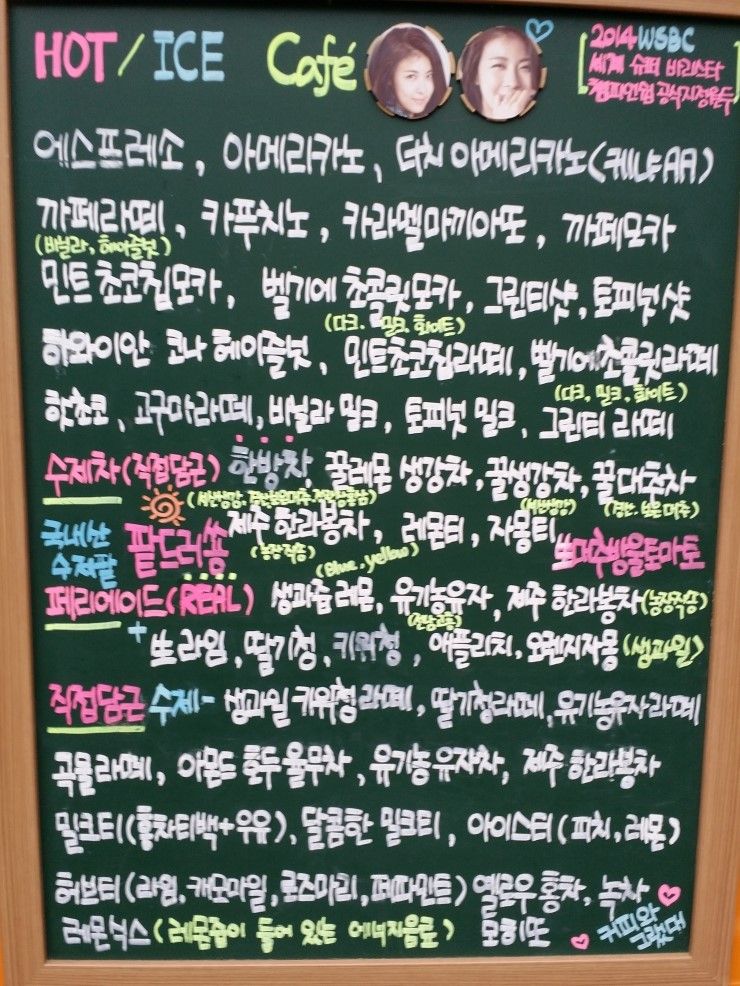 HOT / ICE Café
[2014 WSBC
세계 슈퍼 바리스타
챔피언쉽 공식지정원두]
에스프레소, 아메리카노, 더치 아메리카노(케냐AA)
까페라떼, 카푸치노, 카라멜마끼아또, 까페모카
(바닐라, 헤이즐넛)
민트초코칩모카, 벨기에 초콜릿모카, 그린티샷, 토피넛샷
(다크, 밀크, 화이트)
하와이안 코나 헤이즐넛, 민트초코칩라떼, 벨기에초콜릿라떼
(다크, 밀크, 화이트)
핫초코, 고구마라떼, 바닐라 밀크, 토피넛 밀크, 그린티 라떼
수제차(직접담근) 한방차, 꿀레몬 생강차, 꿀생강차, 꿀대추차
국내산 수제팥 팥드러쏭 제주 한라봉차, 레몬티, 자몽티
(농장직송) (Blue, yellow)
뽀대추방울토마토
페리에이드(REAL) 생과즙레몬, 유기농유자, 제주 한라봉차(농장직송)
+ 쌩라임, 딸기청, 키위청, 애플리치, 오렌지자몽(생과일)
직접담근 수제- 생과일 키위청라떼, 딸기청라떼, 유기농유자라떼
곡물라떼, 아몬드 호두 율무차, 유기농유자차, 제주 한라봉차
밀크티(홍차티백+우유), 달콤한 밀크티, 아이스티(피치, 레몬)
허브티(라임, 캐모마일, 로즈마리, 페파민트) 옐로우홍차, 녹차
레몬닉스(레몬즙이 들어 있는 에너지음료) 모히또
커피와
그랬대